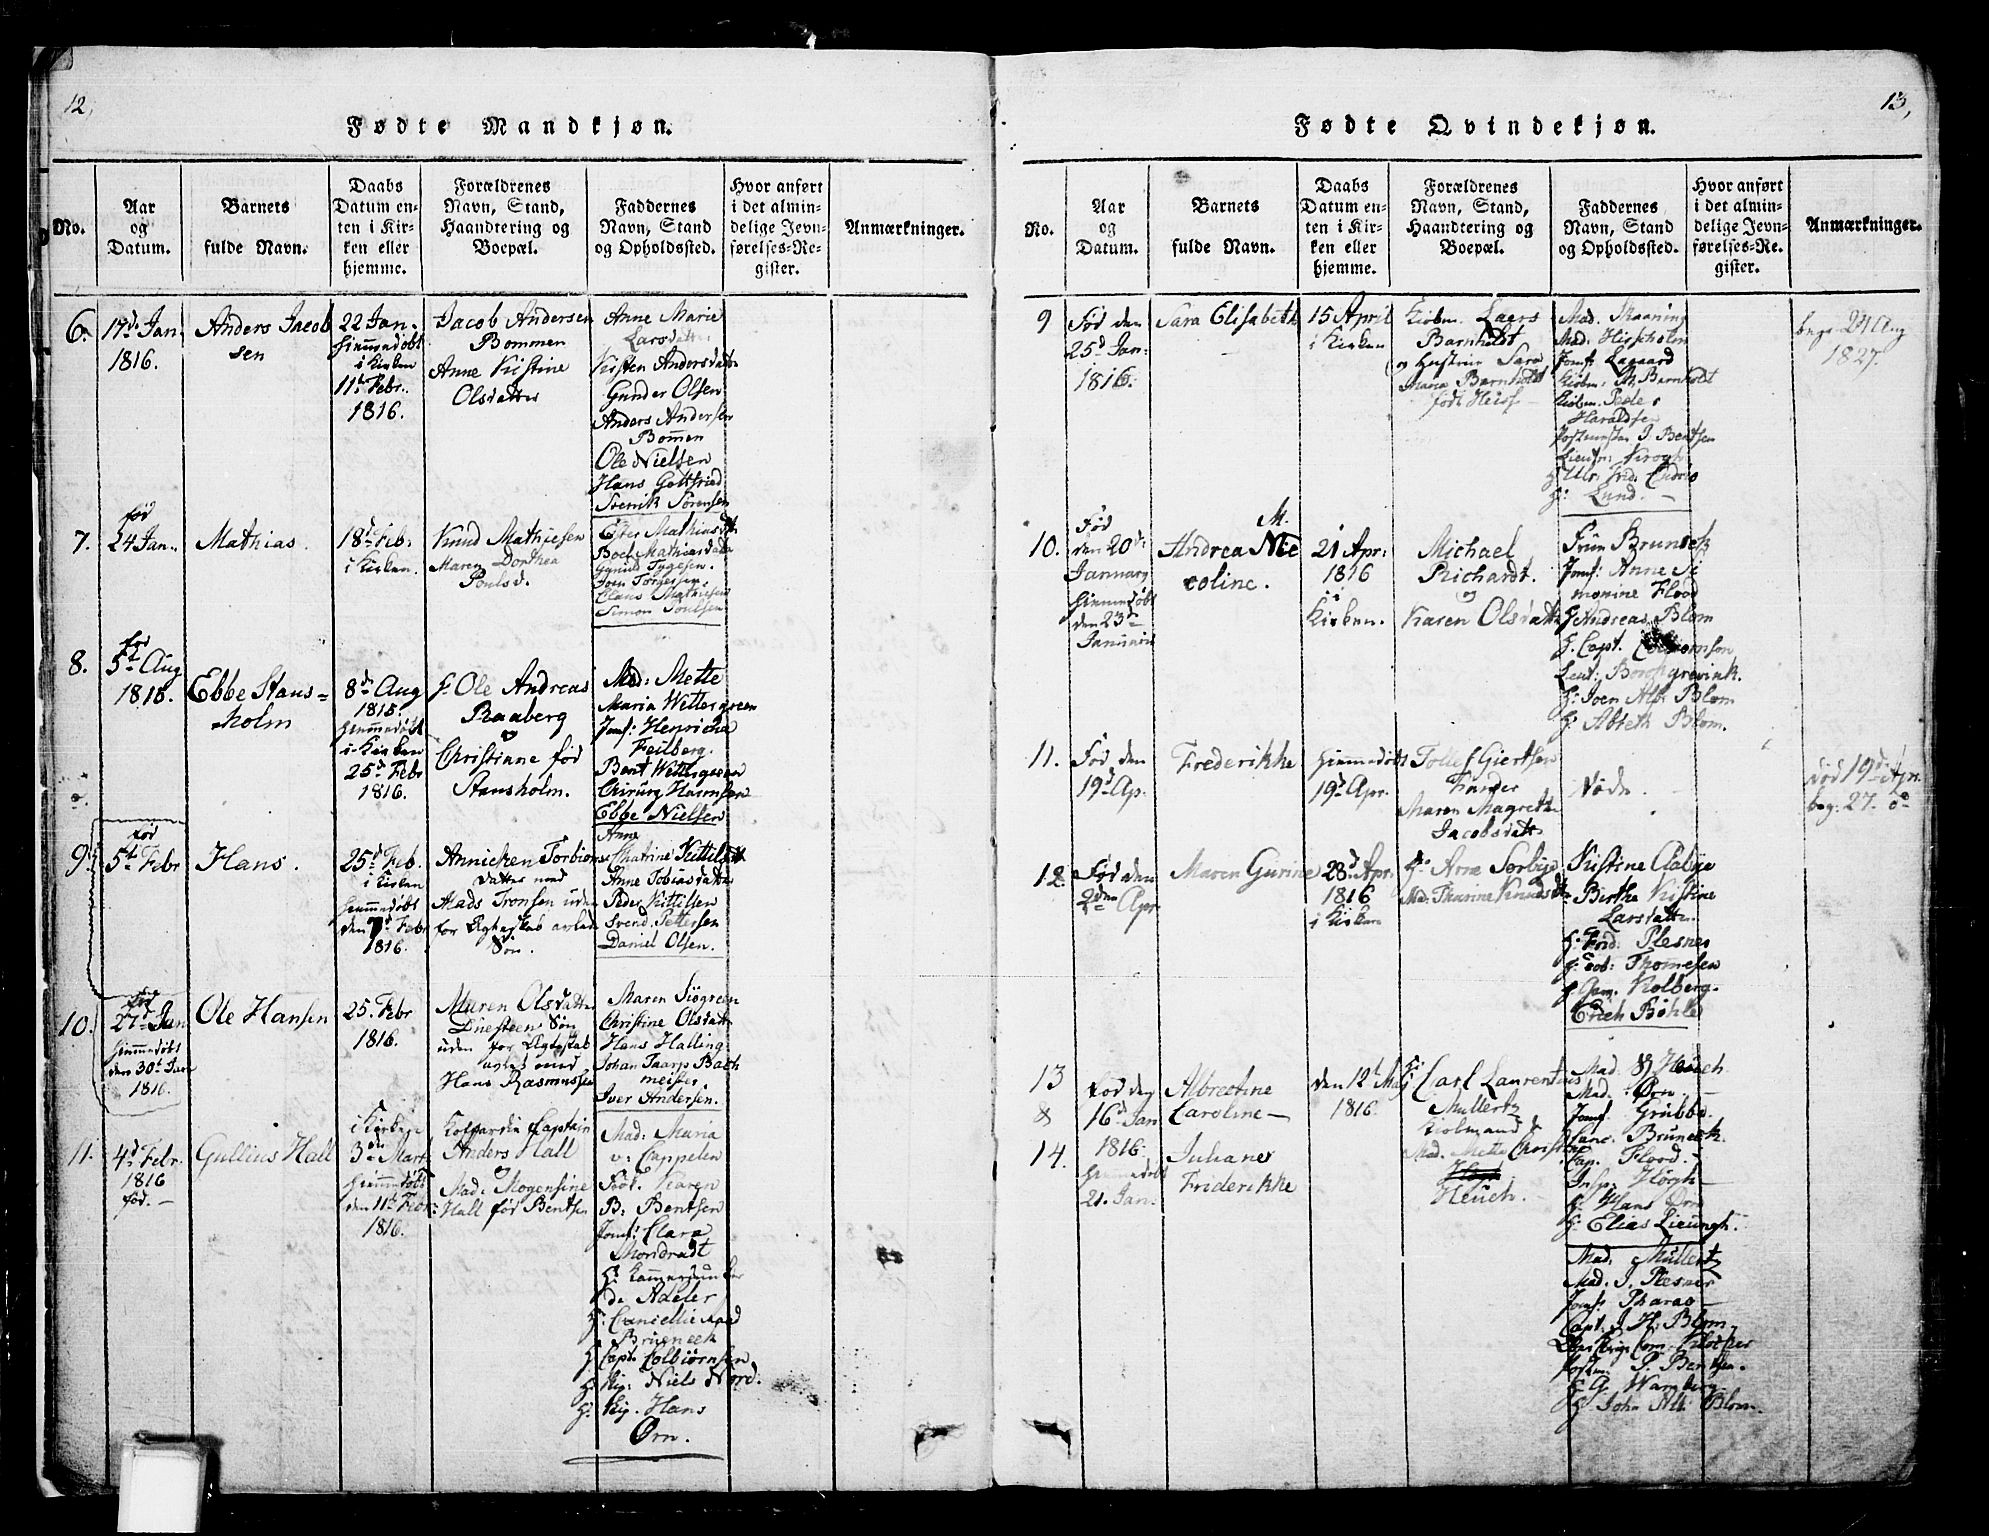 12,
Fødte Mandkjøn.
No.
Aar
og
Datum.
Barnets
fulde Navn.
Daabs
Datum en-
ten i Kir-
ken eller
hjemme.
Forældrenes
Navn, Stand,
Haandtering og
Boepæl.
Faddernes
Navn, Stand
og Opholdssted.
Hvor anført
i det almin-
delige Jevn-
førelses-Re-
gister.
Anmærkninger.
6.
17d Jan.
1816.
Anders Jacob
sen
22 Jan.
hiemmedøbt
i Kirken
11te Febr.
1816.
Jacob Andersen
Bommen
Anne Kistine
Olsdatter
Anne Marie
Larsdatter
Kisten Andersdatter
Gunder Olsen
Anders Andersen
Bommen
Ole Nielsen
Hans Gottfried
Henrik Sørensen
7.
fød
24 Jan.
Mathias.
18d Feb.
i Kirken.
Knud Mathiesen
Maren Dorthea
Poulsd.
Ester Mathiasdtr
Boel Mathiasdatter
Gunild Tygesen.
Joen Torgersen.
Claus Mathiesen
Simon Poulsen
8.
fød
5te Aug
1815.
Ebbe Stans-
holm
8de Aug
1815.
hiemmedøbt
i Kirken
25d Febr
1816.
H. Ole Andreas
Raaberg
og
Christinne fød
Stansholm.
Mad: Mette
Maria Wettergreen
Jomf: Henricha
Feilberg.
Bent Wettergreen
Chirurg Harmsen
Ebbe Nielsen
9.
fød
5te Febr
Hans.
25d Feb.
i Kirken
hiemmedøbt
den 7d Febr
1816.
Annicken Torbiøns
datter med
Mads Tronsen uden
for Ægteskab avlede
Søn.
Anne
Chatrine Kittilsdtr
Anne Tobiasdatter
Peder Kittilsen
Svend Pettersen
Daniel Olsen.
10.
fød
27d Jan
hiemmedøbt
den 30te Jan
1816.
Ole Hansen
25. Febr
1816.
Maren Olsdatter
Duesteen Søn
uden for Ægteskab
avlet med
Hans Rasmussen
Maren Siøgreen
Christine Olsdatter
Hans Halling
Johan Taarp Bach
meister.
Iver Andersen.
11.
4d Febr.
1816
fød.
Gullius Hall
i Kirken
den
3die Mart
hiemmedøbt
den 11te Febr:
1816.
Kofardie Captain
Anders Hall
og
Mad: Mogensine
Hall fød Bentsen
Mad: Maria
v: Cappelen
Frøk. Karen
B: Bentsen
Jomf: Clara
Mondradt
H: Kammerjunker
de Adeler
H: Cancellieraad
Brüneck
H Capt: Colbiørnsen
H: Skip: Niels Nord.
H: Skip. Hans
Ørn.
13,
Fødte Qvindekjøn.
No.
Aar
og
Datum.
Barnets
fulde Navn.
Daabs
Datum en-
ten i Kir-
ken eller
hjemme.
Forældrenes
Navn, Stand,
Haandtering og
Boepæl.
Faddernes
Navn, Stand
og Opholdssted.
Hvor anført
i det almin-
delige Jevn-
førelses-Re-
gister.
Anmærkninger.
9
Fød den
25d Jan:
1816.
Sara Elisabeth
15 April
i Kirken
Kiøbm. Laers
Barnholdt
og Hustrue Sara
Maria Barnholdt
født Heisf
Mad. Skaaning
Mad. Hirscholm
Jomf. Lagaard
Kiøbm: A. Barnholdt
Kiøbm. Peder
Haraldsen
Postmester J. Bentsen
Lieutn: Krogh
H: Lund.
begr. 24 Aug
1827.
10.
Fød
den 20de
January
hiemmedøbt
den 23de
Januarii
M.
Andrea Nic
coline.
21 Apr:
1816
i
Kirken.
Michael
Richardt.
og
Karen Olsdatter
Frue Bruneck
Jomf: Anne Si
monine Flood
H Andreas Blom
H. Capt. Colbiørnsen
Leut: Borchgrevink.
H: Joen Alb: Blom
H: Abseth Blom.
11.
Fød den
19d Ap.
Frederikke
hiemmedøbt
19d Apr.
Tollef Giertsen
Maren Magrethe
Jacobsdatter
Nøde.
død 19de Apr.
beg. 27. do
12.
Fød den
2den Apr.
Maren Gurine
28d Apr.
1816
i Kirken
H. Arne Sorbye
Mad. Thurine Knudsdtr
Kistine Aabye
Birthe Kistine
Larsdatter.
H. Ferd: Plesner
H. Tob: Thomesen
H Gm. Kolberg.
Erich Bøhle
13
&
14.
Fød den
16d Jan
1816.
hiemmedøbt
21. Jan.
Albrectine
Caroline
Juliane
Friderikke
den 12te Maj
1816.
H: Carl Laurentius
Mullertz
Kiøbmand &
Mad. Mette Christine
Heuch.
Mad. Heuch
Mad. Ørn
Jomf. Grubbe.
Canc. Bruneck.
Cap. Flood.
Insp. Høgh
H. Hans Ørn
H: Elias Lieungh.
Mad. Mullertz
Mad. J. Plesner
Jomf: Pharao
Capt. J. H. Blom
Postm. P. Bentsen.
H G. Warnberg
H John Alb. Blom.